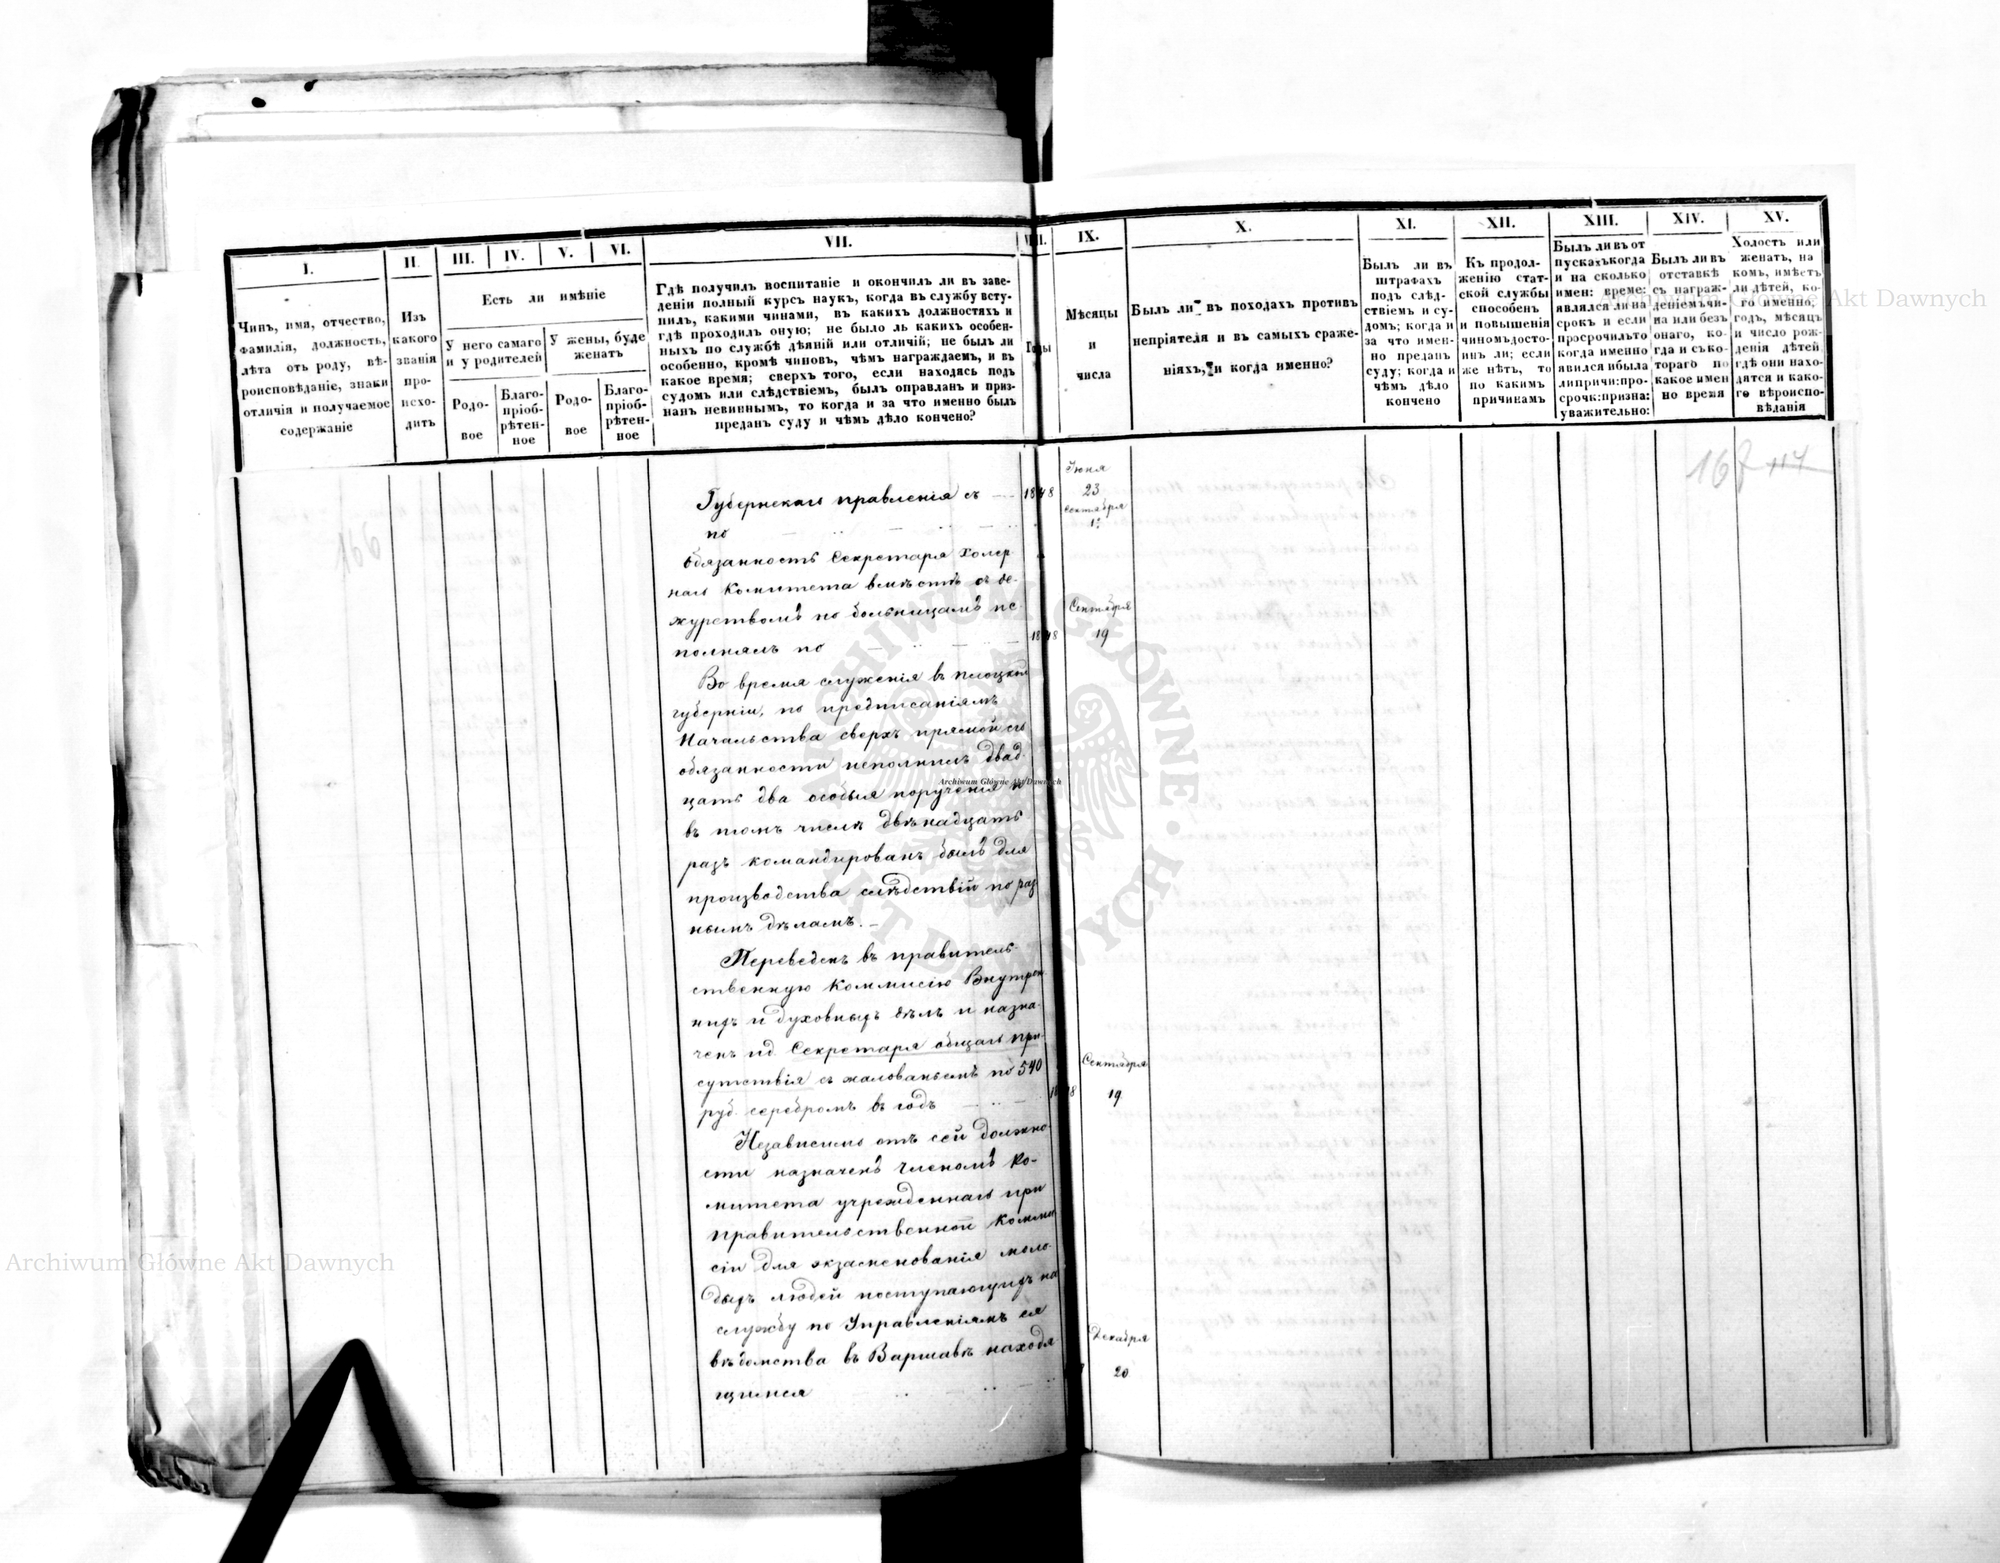 I.
Чинъ, имя, отчество,
фамилія, должность,
лѣта отъ роду, вѣ-
роисповѣданіе, знаки
отличія и получаемое
содержаніе
II.
Изъ
какого
званія
про-
исхо-
дитъ
III.
IV.
V.
VI.
Есть ли имѣніе
У него самаго
и у родителей
У жены, буде
женатъ
Родо-
вое
Благо-
пріоб-
рѣтен-
ное
Родо-
вое
Благо-
пріоб-
рѣтен-
ное
VII.
Гдѣ получилъ воспитаніе и окончилъ ли въ заве-
деніи полный курсъ наукъ, когда въ службу всту-
пилъ, какими чинами, въ какихъ должностяхъ и
гдѣ проходилъ оную; не было ль какихъ особен-
ныхъ по службѣ дѣяній или отличій; не былъ ли
особенно, кромѣ чиновъ, чѣмъ награждаемъ, и въ
какое время; сверхъ того, если находясь подъ
судомъ или слѣдствіемъ, былъ оправланъ и приз-
нанъ невиннымъ, то когда и за что именно былъ
преданъ суду и чѣмъ дѣло кончено?
VIII.
Годы
IX.
Мѣсяцы
и
числа
X.
Былъ ли въ походахъ противъ
непріятеля и въ самыхъ сраже-
ніяхъ, и когда именно?
XI.
Былъ ли въ
штрафахъ
подъ слѣд-
ствіемъ и су-
домъ; когда и
за что имен-
но преданъ
суду; когда и
чѣмъ дѣло
кончено
XII.
Къ продол-
женію стат-
ской службы
способенъ
и повышенія
чиномъдосто-
инъ ли; если
же нѣтъ, то
по какимъ
причинамъ
XIII.
Былъ ли въ от
пускахъкогда
и на сколько
имен: время:
явился ли на
срокъ и если
просрочилъто
когда именно
явился ибыла
липричи:про-
срочк:призна:
уважительно:
XIV.
Былъ ли въ
отставкѣ
съ награж-
деніемъчи-
на или безъ
онаго, ко-
гда и съко-
тораго по
какое имен
но время
XV.
Холостъ или
женатъ, на
комъ, имѣетъ
ли дѣтей, ко-
го именно,
годъ, мѣсяцъ
и число рож-
денія дѣтей
гдѣ они нахо-
дятся и како-
го вѣроиспо-
вѣданія
166
167 117
Губернскаго правленія съ 1848 Іюня 23
по Сентября 1
обязанность Секретаря Холер-
наго Комитета вмѣстѣ съ де-
журствомъ по больницамъ ис-
полнялъ по 1848 Сентября 19
Во время служенія въ Плоцкой
губерніи, по предписаніямъ
Начальства сверхъ прямой сво
обязанности исполнилъ двад-
цать два особыя порученія и
въ томъ числѣ двѣнадцать
разъ командированъ былъ для
производства слѣдствій по раз
нымъ дѣламъ.
Переведенъ въ правитель-
ственную Коммисію Внутрен
нихъ и духовныхъ дѣлъ и назна-
ченъ ид. Секретаря общаго при-
сутствія съ жалованьемъ по 540
руб. серебромъ въ годъ 1848 Сентября 19
Независимо отъ сей должно-
сти назначенъ Членомъ Ко-
митета учрежденнаго при
правительственной Комми
сіи для экзаменованія моло-
дыхъ людей поступающихъ на
службу по Управленіямъ ея
вѣдомства въ Варшавѣ находя
щимся Декабря 20
Archiwum Główne Akt Dawnych
Archiwum Główne Akt Dawnych
Archiwum Główne Akt Dawnych
ARCHIWUM GŁÓWNE · AKT DAWNYCH ·